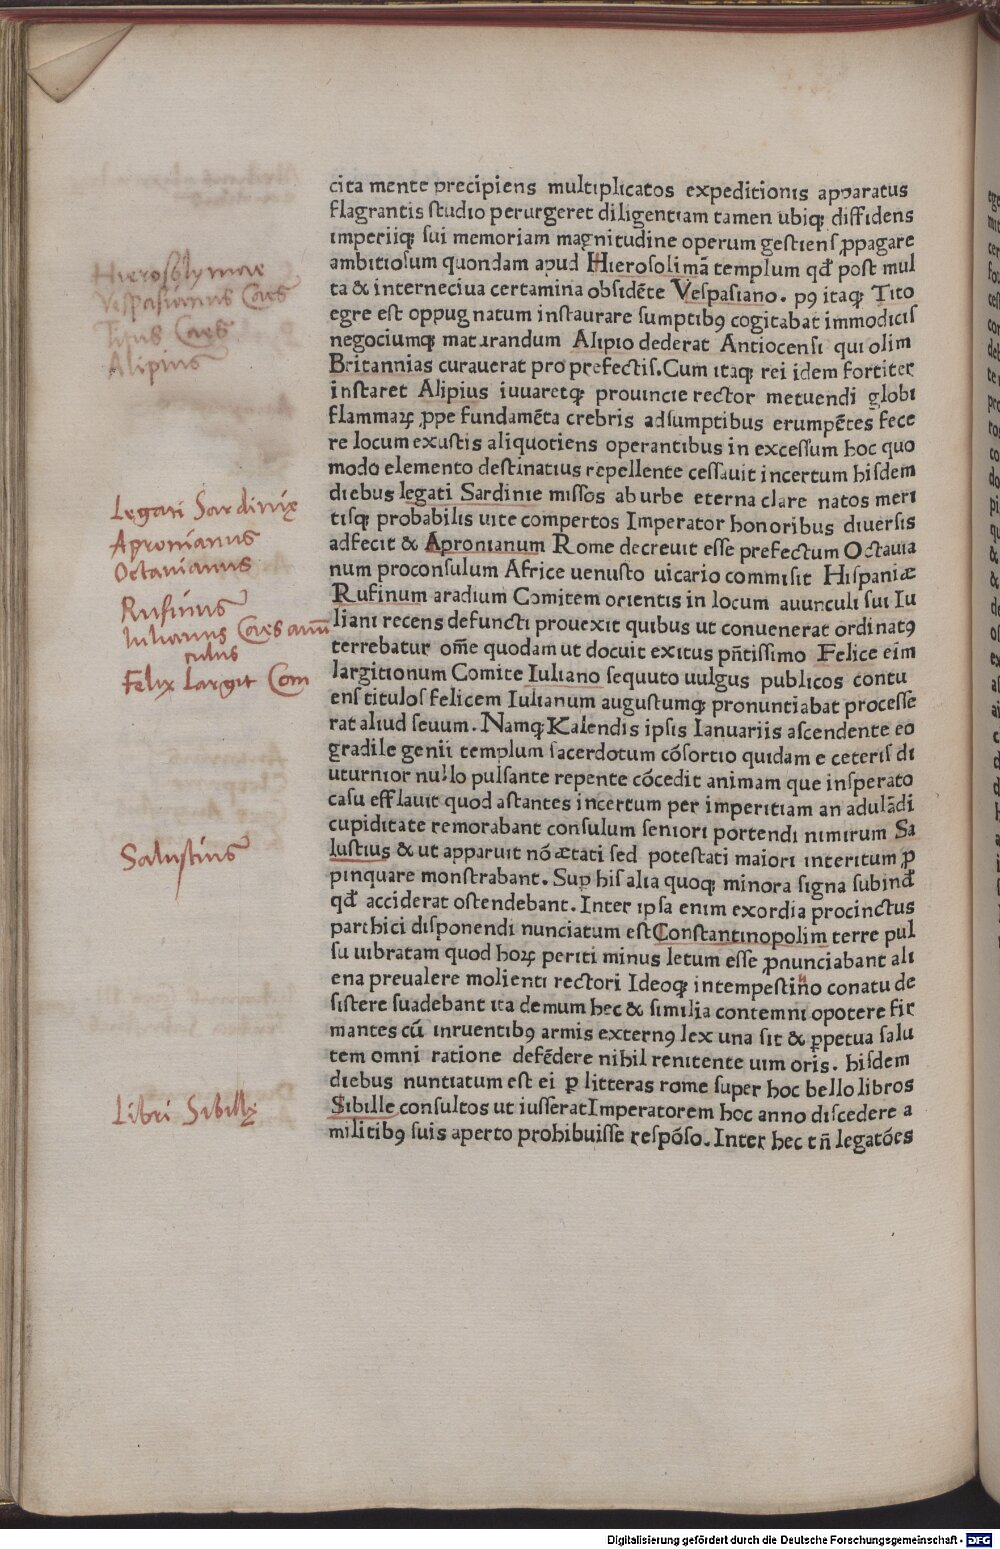 cita mente precipiens multiplicatos expeditionis apparatus
flagrantis ſtudio perurgeret diligentiam tamen ubiqꝫ diffidens
imperiiqꝫ ſui memoriam magnitudine operum geſtienſ ꝓpagare
ambitioſum quondam apud Hieroſolimā templum qđ poſt mul
ta & interneciua certamina obſidēte Veſpaſiano. pꝯ itaqꝫ Tito
egre eſt oppugnatum inſtaurare ſumptibꝯ cogitabat immodiciſ
negociumqꝫ maturandum Alipio dederat Antiocenſi qui olim
Britannias curauerat pro prefectiſ. Cum itaqꝫ rei idem fortiter
inſtaret Alipius iuuaretqꝫ prouincie rector metuendi globi
flammaꝝ ꝓpe fundamēta crebris adſumptibus erumpētes fece
re locum exuſtis aliquotiens operantibus in exceſſum hoc quo
modo elemento deſtinatius repellente ceſſauit incertum hiſdem
diebus legati Sardinie miſſos ab urbe eterna clare natos meri
tiſqꝫ probabilis uite compertos Imperator honoribus diuerſis
adfecit & Apronianum Rome decreuit eſſe prefectum Octauia
num proconſulum Africe uenuſto uicario commiſit Hiſpaniæ
Rufinum aradium Comitem orientis in locum auunculi ſui Iu
liani recens defuncti prouexit quibus ut conuenerat ordinatꝯ
terrebatur om̄e quodam ut docuit exitus pn̄tiſſimo Felice eim
largitionum Comite Iuliano ſequuto uulgus publicos contu
enſ titulos felicem Iulianum auguſtumqꝫ pronuntiabat proceſſe
rat aliud ſeuum. Namqꝫ Kalendis ipſis Ianuariis aſcendente eo
gradile genii templum ſacerdotum cōſortio quidam e ceteriſ di
uturnior nullo pulſante repente cōcedit animam que inſperato
caſu efflauit quod aſtantes incertum per imperitiam an adulādi
cupiditate remorabant conſulum ſeniori portendi nimirum Sa
luſtius & ut apparuit nō ætati ſed poteſtati maiori interitum ꝓ
pinquare monſtrabant. Suꝑ hiſ alia quoqꝫ minora ſigna ſubinđ
qđ acciderat oſtendebant. Inter ipſa enim exordia procinctus
parthici diſponendi nunciatum eſt Conſtantinopolim terre pul
ſu uibratam quod hoꝝ periti minus letum eſſe ꝓnunciabant ali
ena preualere molienti rectori Ideoqꝫ intempeſtiño conatu de
ſiſtere ſuadebant ita demum hec & ſimilia contemni opotere fir
mantes cū inruentibꝯ armis externꝯ lex una ſit & ꝑpetua ſalu
tem omni ratione defēdere nihil renitente uim oris. hiſdem
diebus nuntiatum eſt ei ꝑ litteras rome ſuper hoc bello libros
Sibille conſultos ut iuſſerat Imperatorem hoc anno diſcedere a
militibꝯ ſuis aperto prohibuiſſe reſpōſo. Inter hec tn̄ legatōes
Hierosolymae
Vespasianus Caes
Titus Caes
Alipius
Legati Sardinię
Apronianus
Octavianus
Rufinus
Iulianus Caes aūn
culus
Felix Largit Com
Salustius
Libri Sibillę
Digitalisierung gefördert durch die Deutsche Forschungsgemeinschaft - DFG